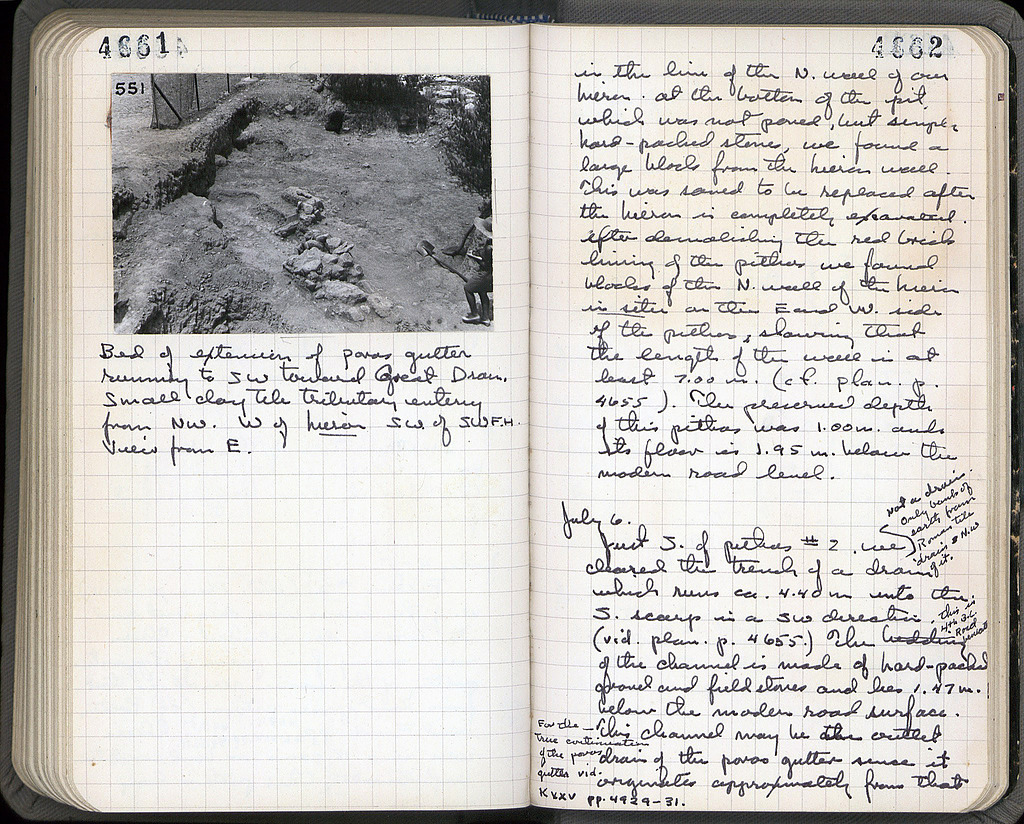 4661
551
Bed of extension of poros gutter
running to SW toward Great Drain.
Small clay tile tributary entering
from NW. W of hieron SW of SWF.H.
View from E.
4662
in the line of the N. wall of our
hieron. At the bottom of the pit,
which was not paved, but simply
hard-packed stones, we found a
large block from the hieron wall.
This was saved to be replaced after
the hieron is completely excavated.
After demolishing the red brick
lining of the pithos we found
blocks of the N. wall of the hieron
in situ on the E and W. side
of the pithos, showing that
the length of the wall is at
least 7.00 m. (cf. plan. p.
4655). The preserved depth
of this pithos was 1.00m. and
its floor is 1.95 m. below the
modern road level.
July 6.
Just S. of pithos # 2 we
cleared the trench of a drain
which runs ca. 4.40 m into the
S. scarp in a SW direction.
(vid. plan. p. 4655.) The bedding
of the channel is made of hard-packed
gravel and field stones and lies 1.47 m.
below the modern road surface.
This channel may be the outlet
drain of the poros gutter since it
originates approximately from that
Not a drain.
Only bank of
earth from
Roman tile
drain N.W
of it.
this is
4th B.C.
Road
For the
true continuation
of the poros
gutter vid.
KXXV pp. 4929-31.